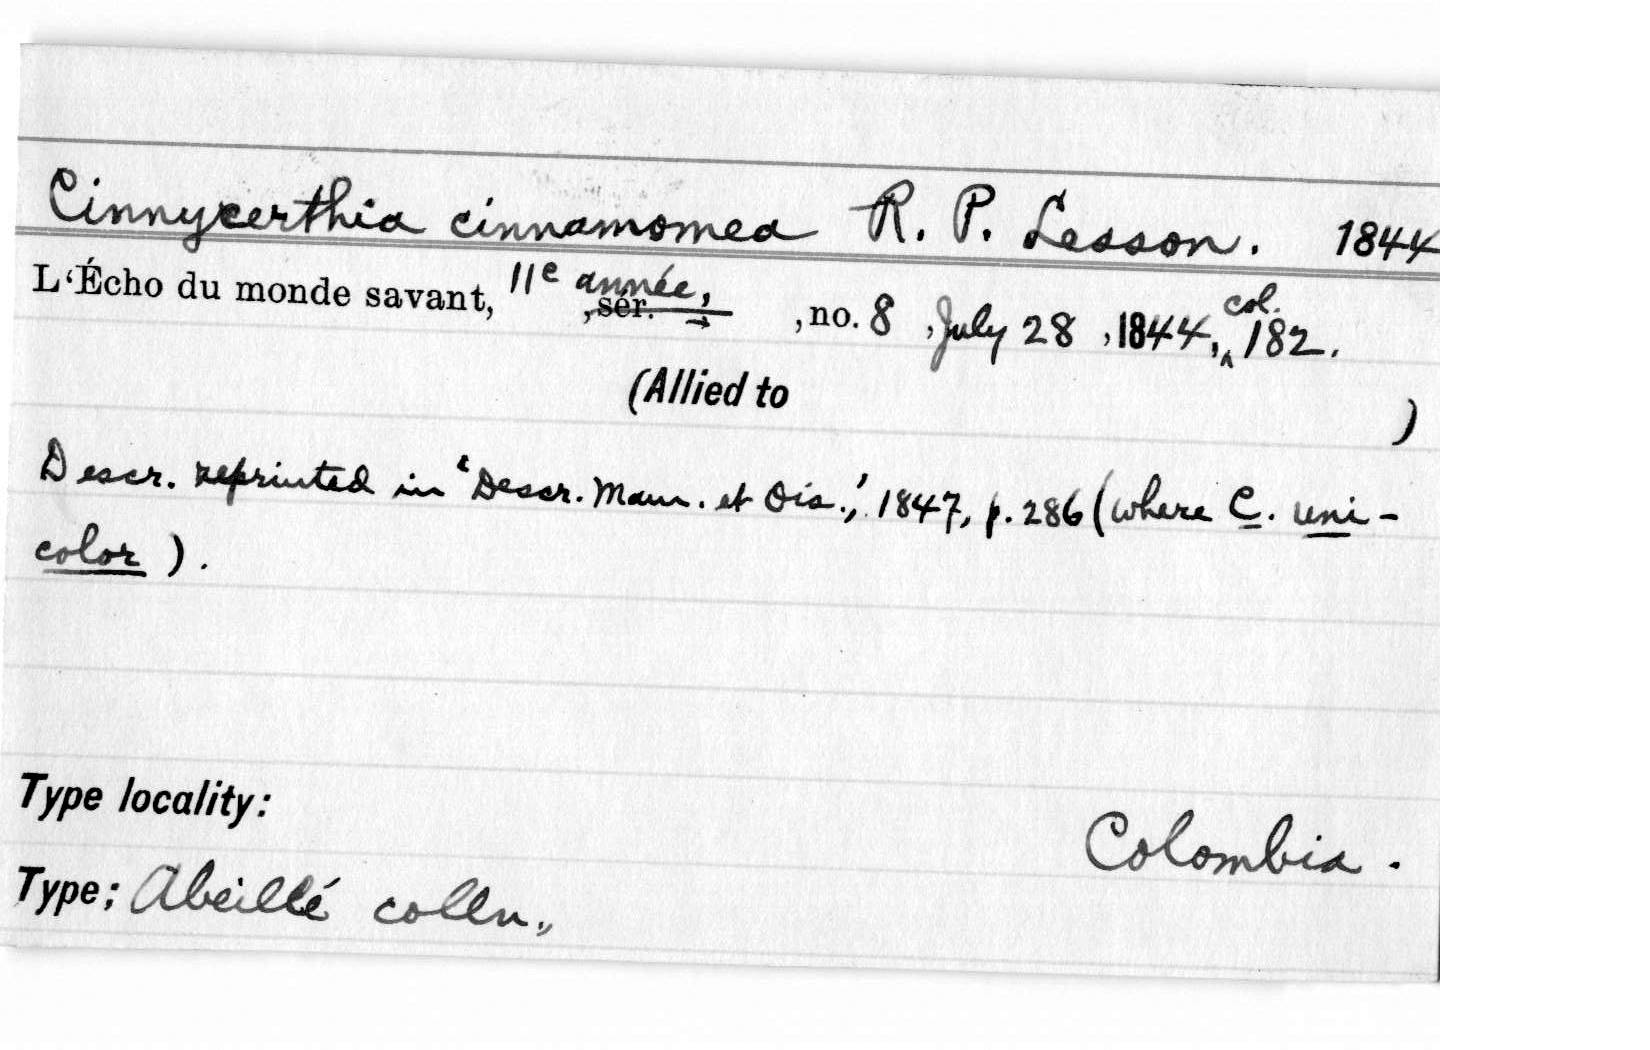 Cinnycerthia cinnamomea R. P. Lesson. 1844
L'Écho du monde savant, 11e année, ,sér. → ,no. 8 ,July 28 ,1844, col. 182.
(Allied to )
Descr. reprinted in 'Descr. Mam. et Ois.,' 1847, p. 286 (where C. uni-
color ).
Type locality: Colombia.
Type; Abeillé colln.,